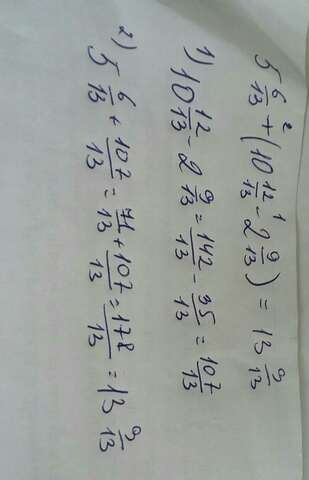 5 6/13 + (10 12/13 - 2 9/13) = 13 9/13
2 1
1) 10 12/13 - 2 9/13 = 142/13 - 35/13 = 107/13
2) 5 6/13 + 107/13 = 71/13 + 107/13 = 178/13 = 13 9/13